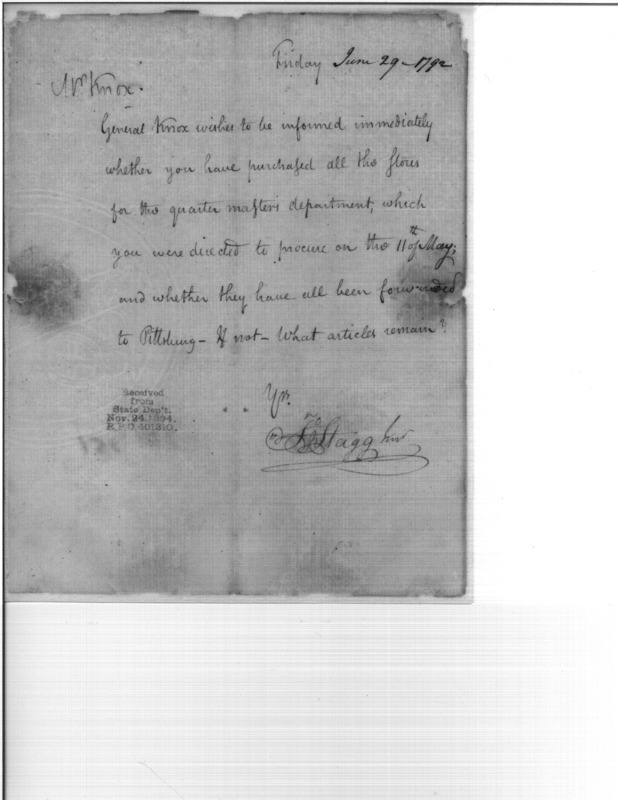 Friday June 29 - 1792
Mr Knox.
General Knox wishes to be informed immediately
whether you have purchased all the stores
for the quarter master's department, which
you were directed to procure on the 11th of May;
and whether they have all been forwarded
to Pittsburg - If not - What articles remain?
Received
from
State Dep't.
Nov. 24. 1894.
R.P.O. 401310.
Yrs.
Stagg Junr